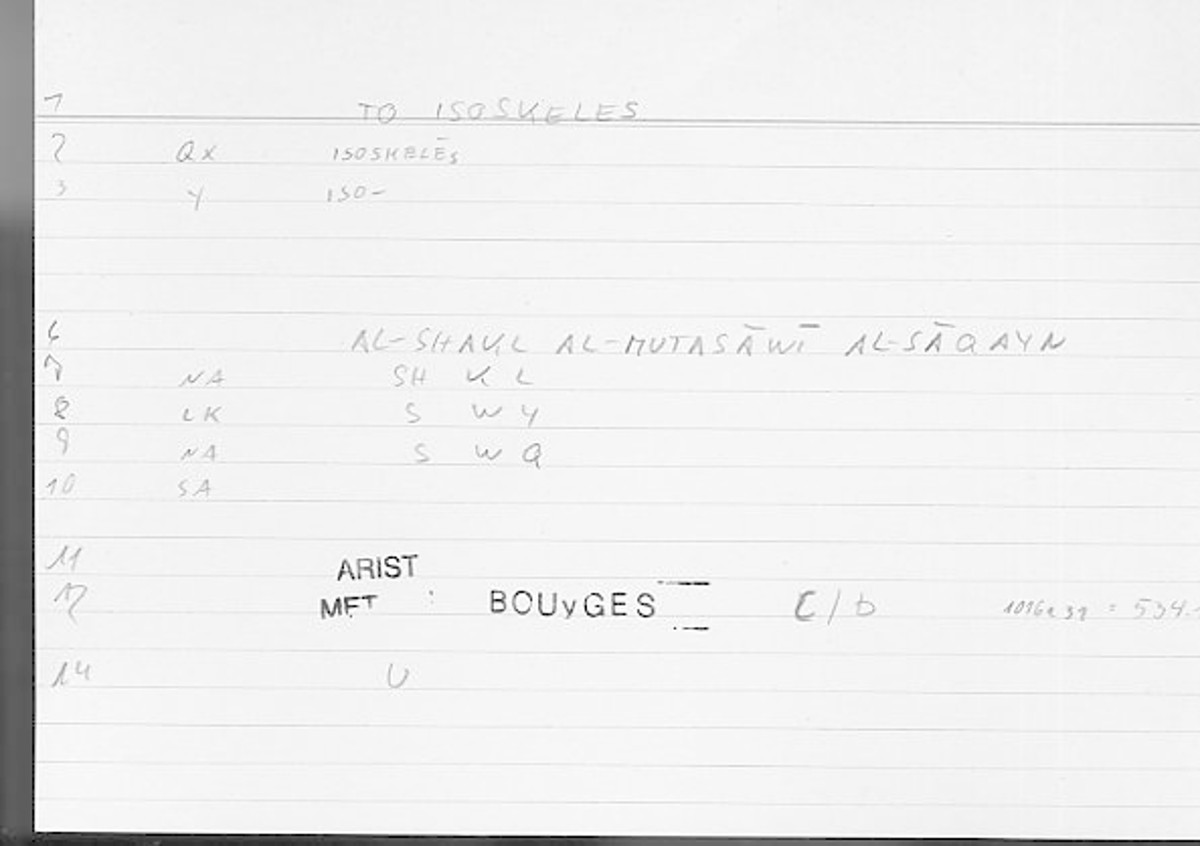 1 TO ISOSKELES
2 QX ISOSKELĒS
3 Y ISO-
6 AL-SHAKL AL-MUTASĀWĪ AL-SĀQAYN
7 NA SH K L
8 LK S W Y
9 NA S W Q
10 SA
11 ARIST
12 MET : BOUYGES C/D 1016a31 = 534.
14 U